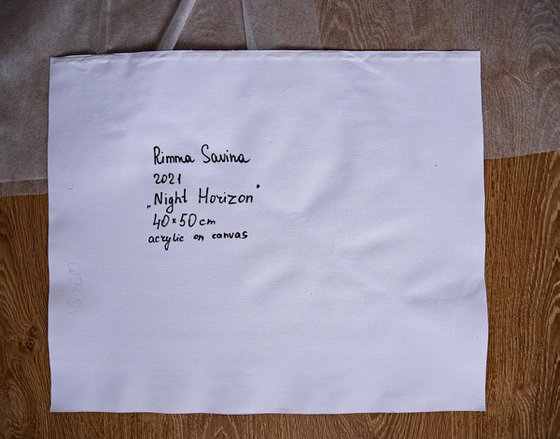 Rimma Savina
2021
„Night Horizon"
40×50 cm
acrylic on canvas